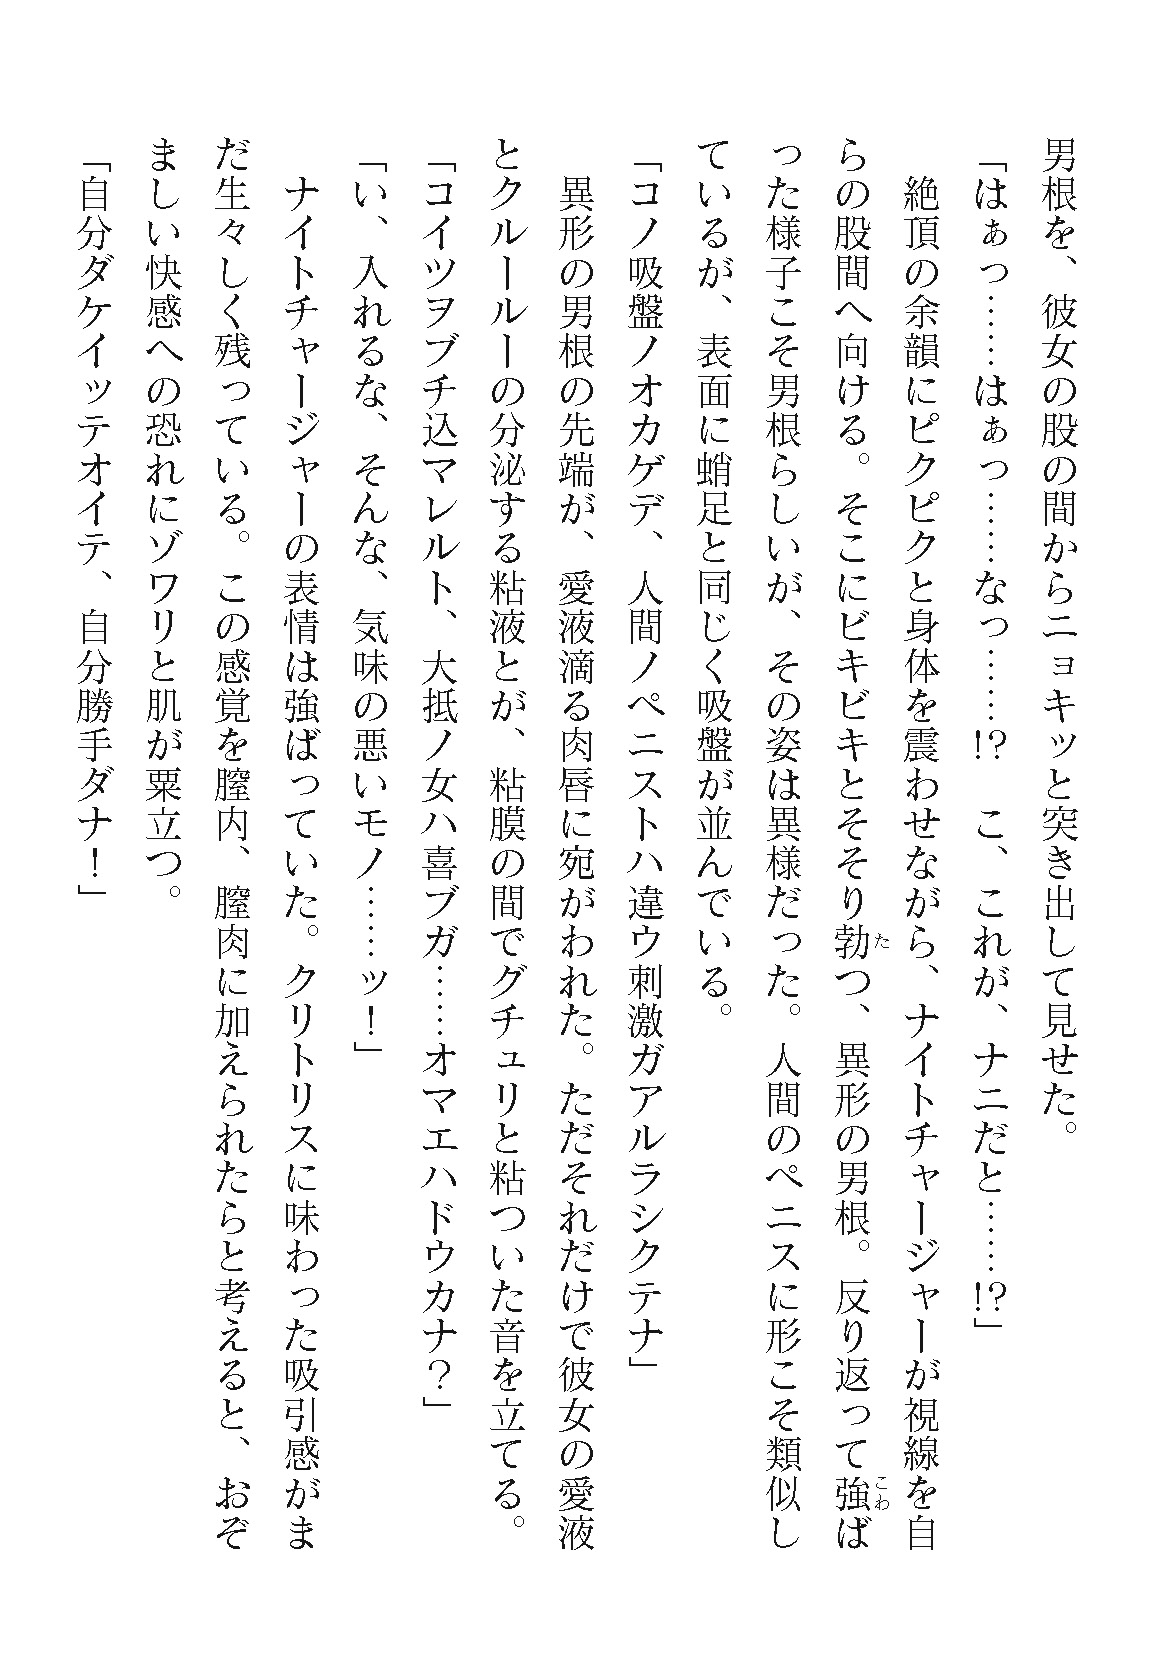 男根を、彼女の股の間からニョキッと突き出して見せた。
「はぁっ……はぁっ……なっ……!?　こ、これが、ナニだと……!?」
　絶頂の余韻にピクピクと身体を震わせながら、ナイトチャージャーが視線を自
らの股間へ向ける。そこにビキビキとそそり勃つ、異形の男根。反り返って強ば
った様子こそ男根らしいが、その姿は異様だった。人間のペニスに形こそ類似し
ているが、表面に蛸足と同じく吸盤が並んでいる。
「コノ吸盤ノオカゲデ、人間ノペニストハ違ウ刺激ガアルラシクテナ」
　異形の男根の先端が、愛液滴る肉唇に宛がわれた。ただそれだけで彼女の愛液
とクルールーの分泌する粘液とが、粘膜の間でグチュリと粘ついた音を立てる。
「コイツヲブチ込マレルト、大抵ノ女ハ喜ブガ……オマエハドウカナ？」
「い、入れるな、そんな、気味の悪いモノ……ッ！」
　ナイトチャージャーの表情は強ばっていた。クリトリスに味わった吸引感がま
だ生々しく残っている。この感覚を膣内、膣肉に加えられたらと考えると、おぞ
ましい快感への恐れにゾワリと肌が粟立つ。
「自分ダケイッテオイテ、自分勝手ダナ！」
た
こわ